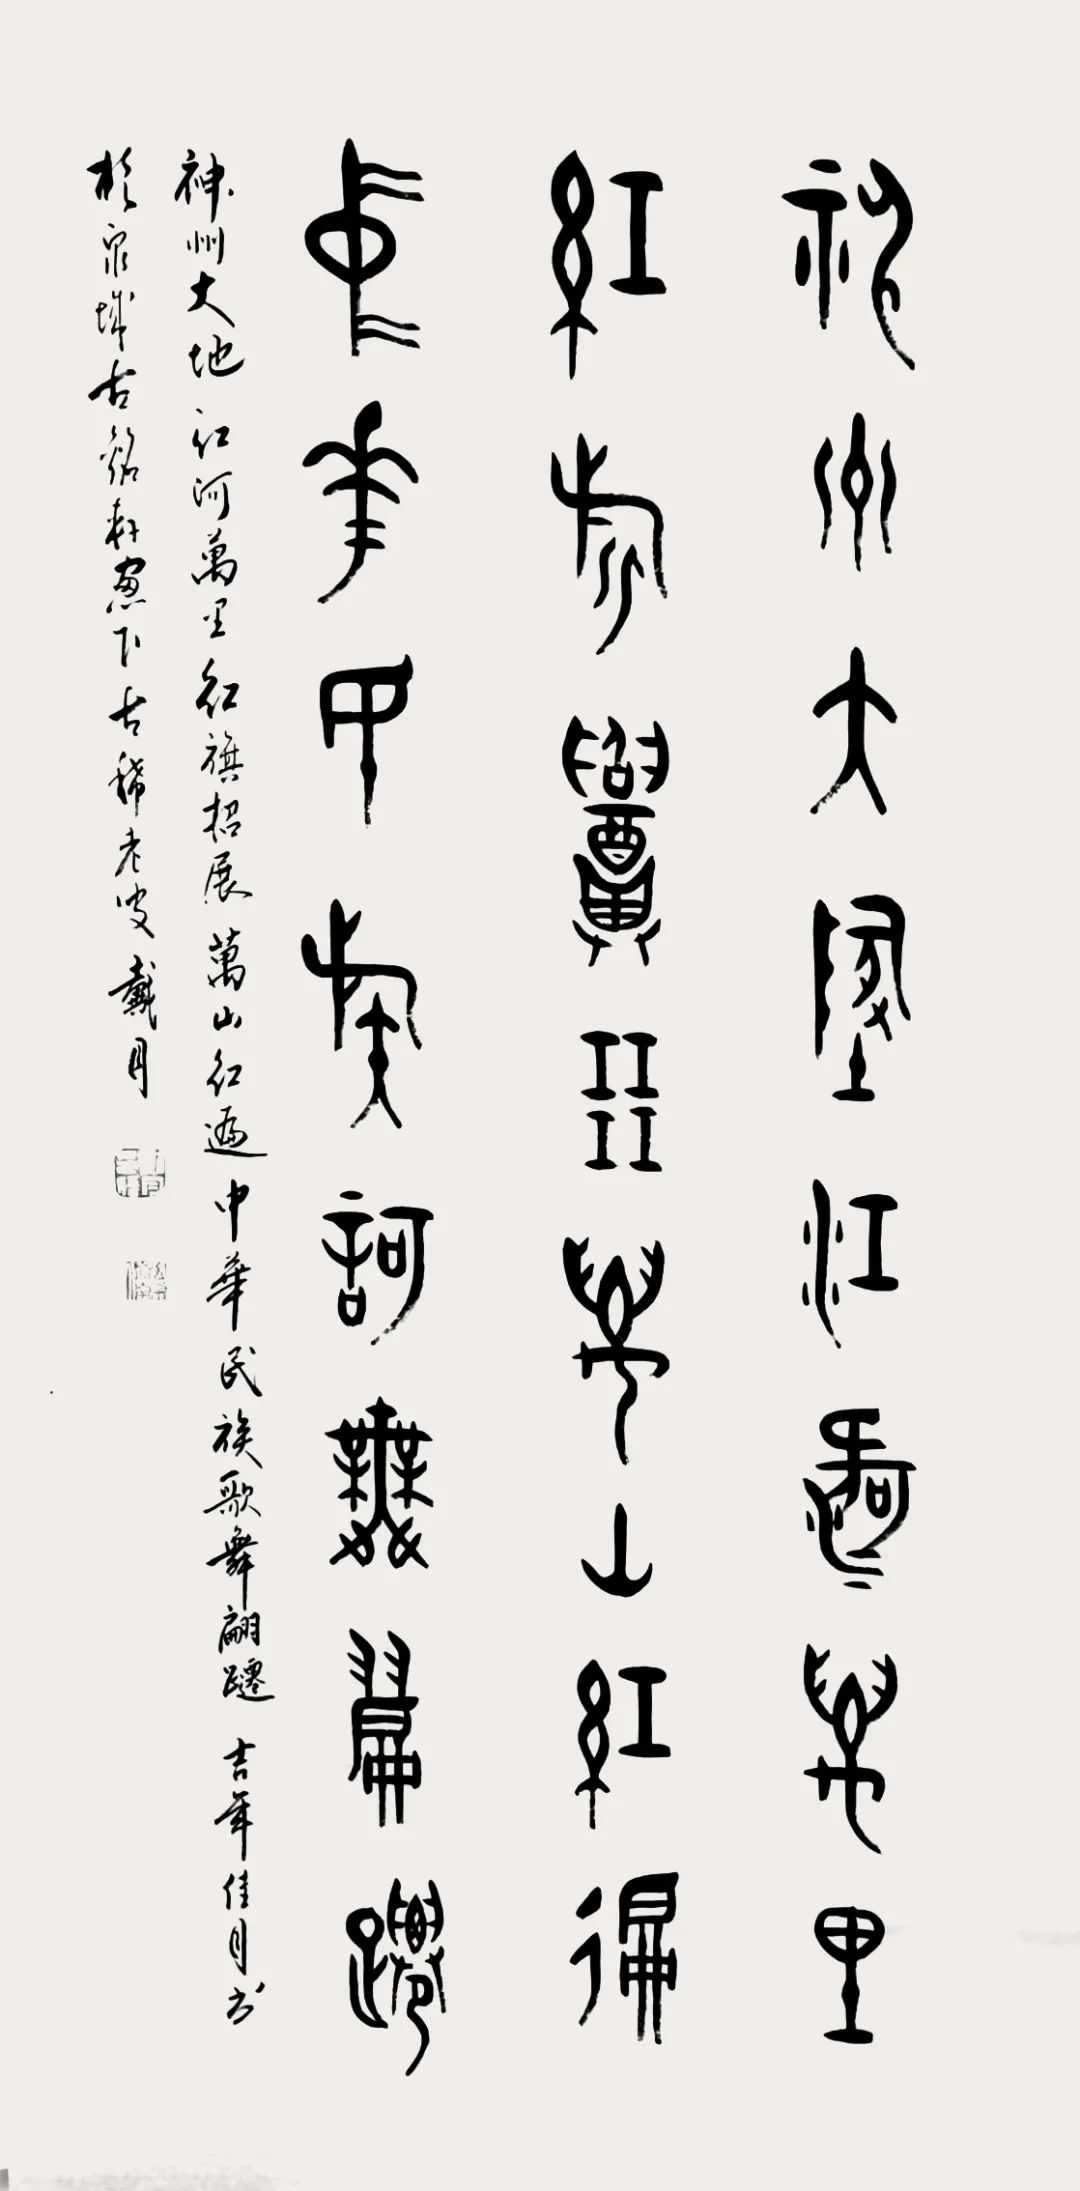 神州大地江河萬里
紅旂招展萬山紅徧
中華民族訶舞翩躚
神州大地江河萬里紅旗招展萬山紅遍中華民族歌舞翩躚吉年佳月書
於泉城古銘軒窗下古稀老叟戴月